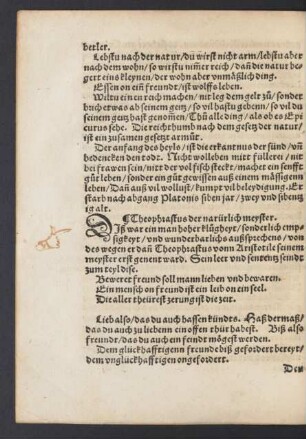 betler.
Lebstu nach der natur/du wirst nicht arm/lebstu aber
nach dem wohn/so wirstu nim̃er reich/dañ die natur be-
gert eins kleynen/der wohn aber vnmäßlich ding.
Essen on ein freundt/ist wolffs leben.
Wiltu einen reich machen/nit leg dem gelt zů/sonder
brich etwas ab seinem geitz/so vil hastu geben/so vil du
seinem geitz hast genomen/Thů alle ding/als ob es Epi
curus sehe. Die reichthumb nach dem gesetz der natur/
ist ein zusamen gesetzt armůt.
Der anfang des heyls/ist die erkantnus der sünd/vñ
bedencken den todt. Nicht wolleben mitt füllerei/nit
bei frawen sein/nit der vol fisch steckt/machet ein senfft
gůt leben/sonder ein gůt gewissen auß einem mässigenn
leben/Dañ auß vil wollust/kumpt vil beleydigung. Er
starb nach abgang Platonis siben jar/zwey vnd sibentz
ig alt.
¶Theophrastus der natürlich meyster.
Diß war ein man hoher klůgheyt/sonderlich emp-
sigkeyt/vnd wunderbarlichs außsprechens/von
des wegen er dañ Theophrastus vonn Aristotile seinem
meyster erst genent ward. Sein leer vnd sententz seindt
zum teyl dise.
Bewert freund soll mann lieben vnd bewaren.
Ein mensch on freund ist ein leib on ein seel.
Die aller theürest zerung ist die zeit.
Lieb also/das du auch hassen kündts. Haß dermaß/
das du auch zu liebenn ein offen thür habest. Biß also
freundt/das du auch ein feindt mögest werden.
Dem glückhafftigenn freunde biß gefordert bereyt/
dem vnglückhafftigen ongefordert.
Den